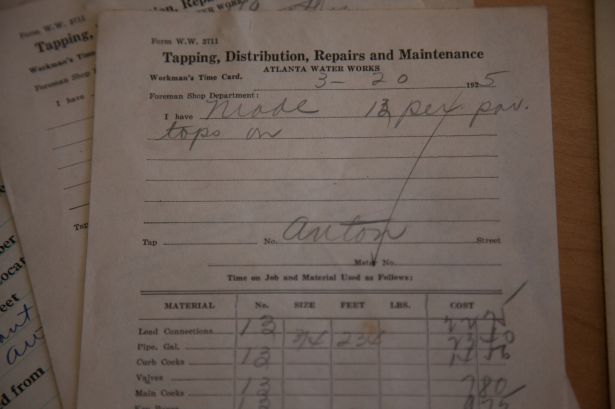 Form W.W. 3711
Tapping, Distribution, Repairs and Maintenance
ATLANTA WATER WORKS
Workman's Time Card. 3-20 1925
Foreman Shop Department:
I have Made 13 per pav.
tops on
Tap No. Anton Street
Meter No.
Time on Job and Material Used as Follows:
MATERIAL No. SIZE FEET LBS. COST
Lead Connections 13
Pipe, Gal. 3/4 234
Curb Cocks 13
Valves
Main Cocks 13 780
Form W.W. 3711
Tapping,
Workman's Time
Foreman Shop
I have
Tap